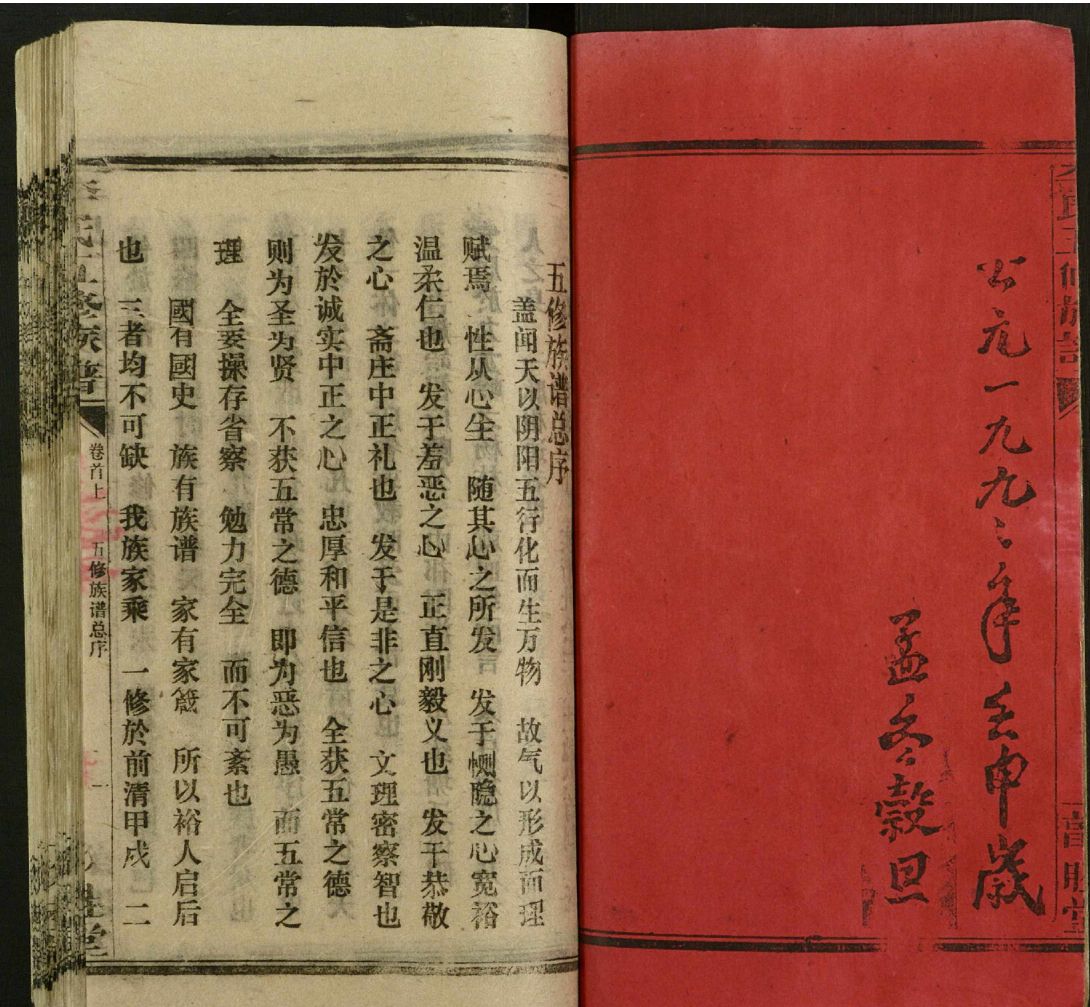 公元一九九二年壬申歲
孟冬穀旦
五修族谱总序
盖闻天以阴阳五行化而生万物 故气以形成而理
赋焉 性从心生 随其心之所发 发于恻隐之心宽裕
温柔仁也 发于羞恶之心 正直刚毅义也 发于恭敬
之心 斋庄中正礼也 发于是非之心 文理密察智也
发於诚实中正之心 忠厚和平信也 全获五常之德
则为圣为贤 不获五常之德 即为恶为愚 而五常之
理 全要操存省察 勉力完全 而不可紊也
國有國史 族有族谱 家有家箴 所以裕人启后
也 三者均不可缺 我族家乘 一修於前清甲戍 二
氏五修族普
卷首上
五修族谱总序
一
堂